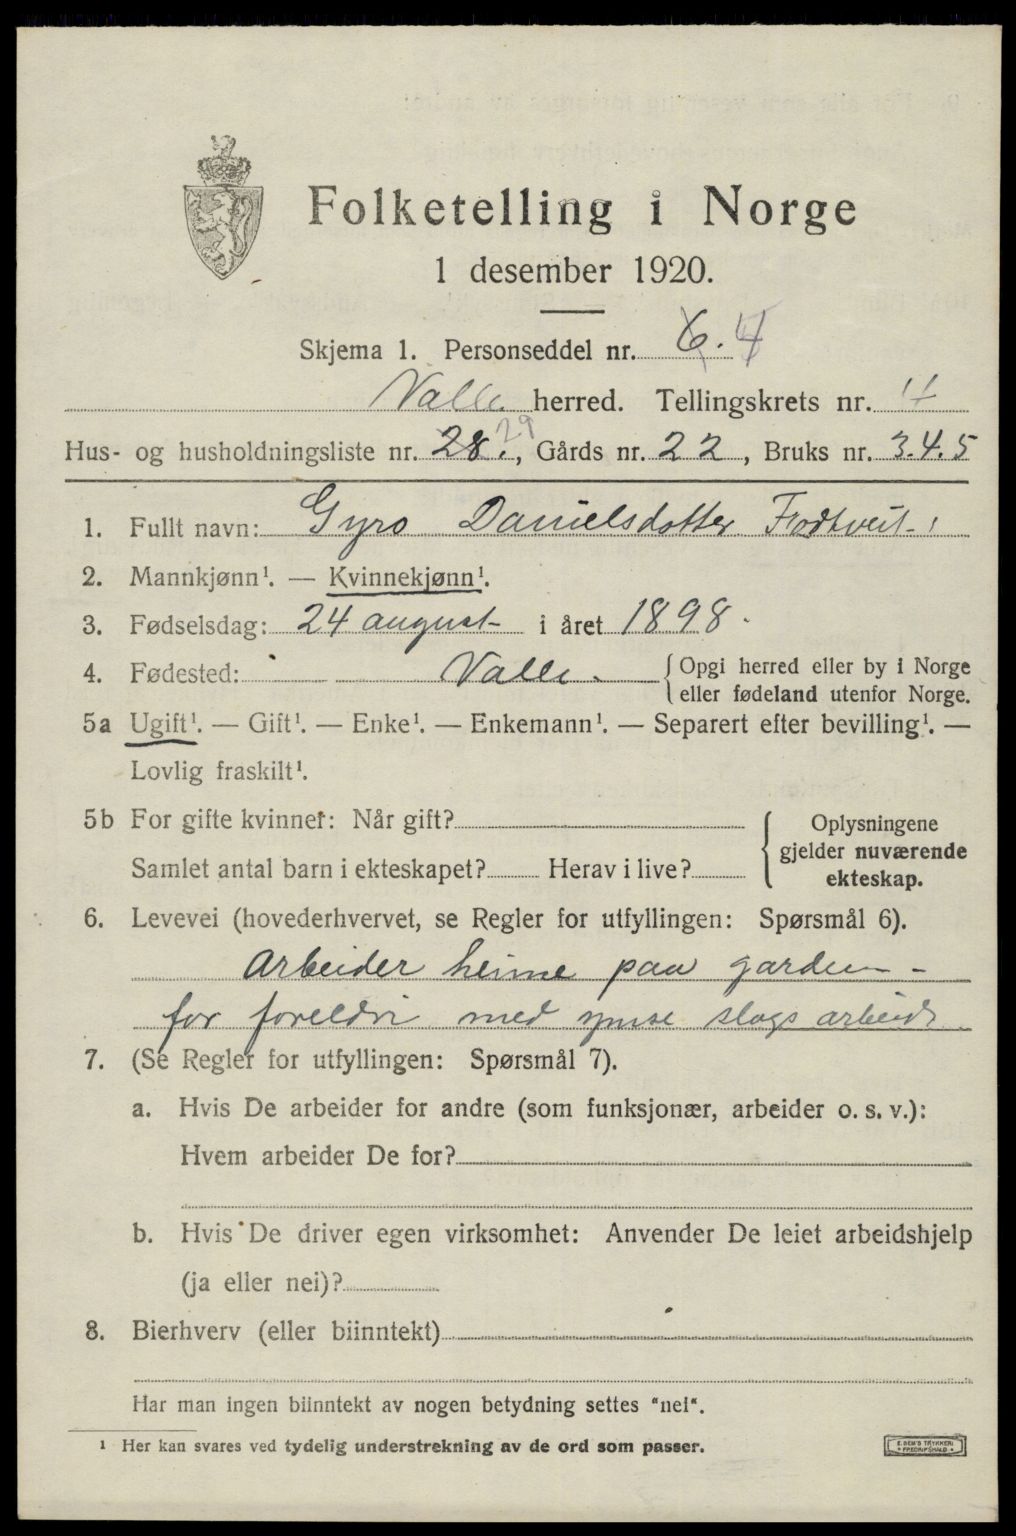 Folketelling i Norge
1 desember 1920.
Skjema 1. Personseddel nr. 6. 4
Valle herred. Tellingskrets nr. 4
Hus- og husholdningsliste nr. 28. 29, Gårds nr. 22, Bruks nr. 3.4.5
1. Fullt navn: Gyro Danielsdotter
2. Mannkjønn¹. — Kvinnekjønn¹.
3. Fødselsdag: 24 august i året 1898.
4. Fødested: Valle. {Opgi herred eller by i Norge
eller fødeland utenfor Norge.
5a Ugift¹. — Gift¹. — Enke¹. — Enkemann¹. — Separert efter bevilling¹. —
Lovlig fraskilt¹.
5b For gifte kvinner: Når gift?
Samlet antal barn i ekteskapet? Herav i live?
{Oplysningene
gjelder nuværende
ekteskap.
6. Levevei (hovederhvervet, se Regler for utfyllingen: Spørsmål 6).
Arbeider heime paa garden
for foreldri med ymse slags arbeide
7. (Se Regler for utfyllingen: Spørsmål 7).
a. Hvis De arbeider for andre (som funksjonær, arbeider o. s. v.):
Hvem arbeider De for?
b. Hvis De driver egen virksomhet: Anvender De leiet arbeidshjelp
(ja eller nei)?
8. Bierhverv (eller biinntekt)
Har man ingen biinntekt av nogen betydning settes "nei".
¹ Her kan svares ved tydelig understrekning av de ord som passer.
E. SEM'S TRYKKERI
FREDRIKSHALD